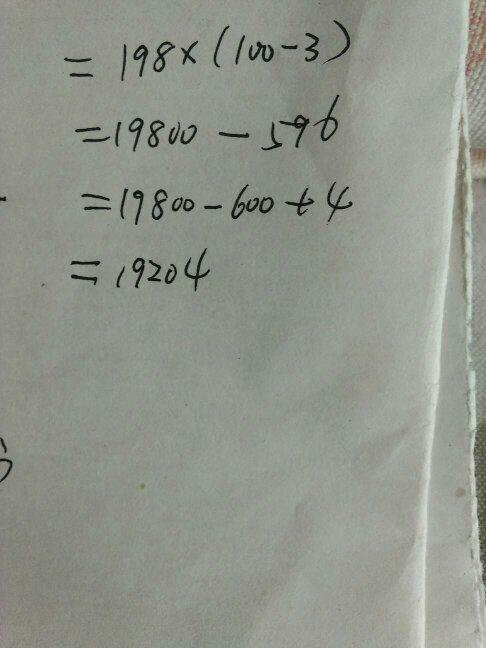 = 198×(100-3)
= 19800 - 596
= 19800 - 600 + 4
= 19204